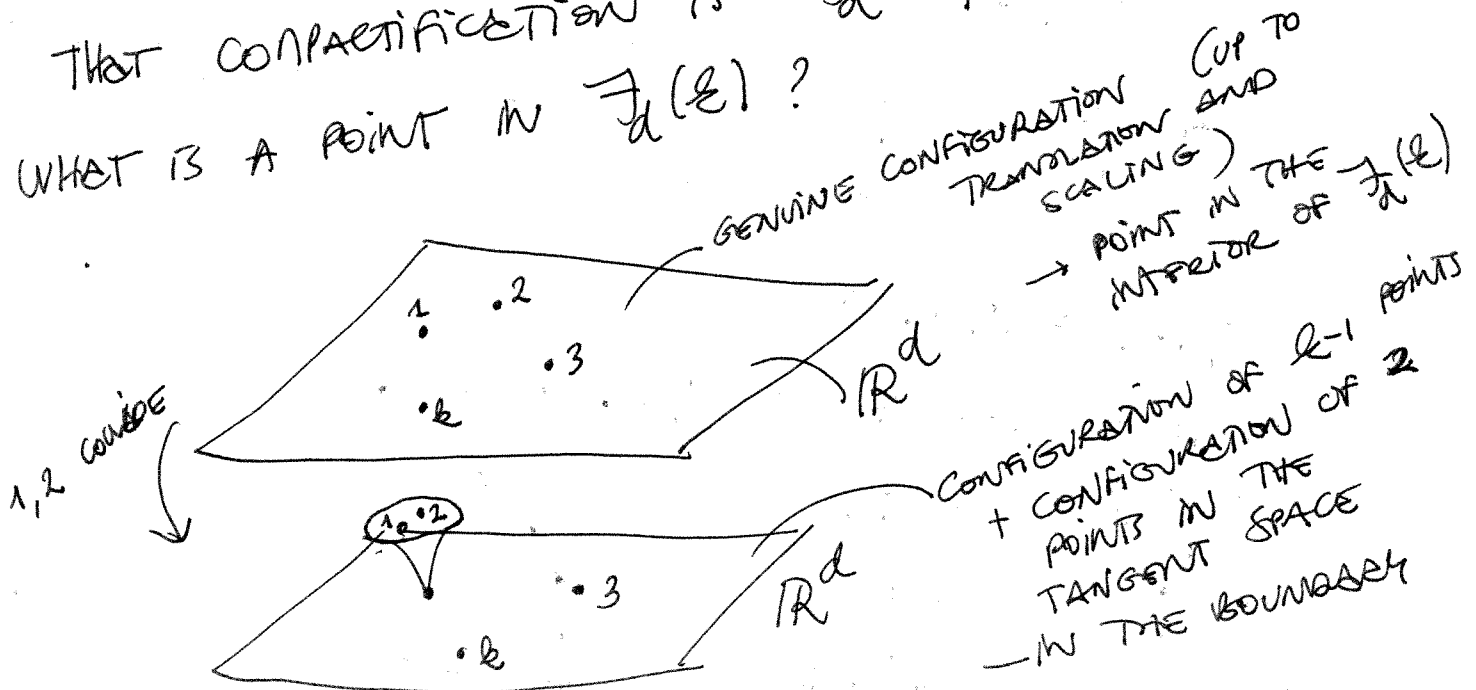 THAT COMPACTIFICATION
WHAT IS A POINT IN F_d(k) ?
GENUINE CONFIGURATION (UP TO
TRANSLATION AND
SCALING)
→ POINT IN THE
INTERIOR OF F_d(k)
1 2
3
k
ℝ^d
1,2 COLLIDE
CONFIGURATION OF k-1 POINTS
+ CONFIGURATION OF 2
POINTS IN THE
TANGENT SPACE
— IN THE BOUNDARY
1 2
3
k
ℝ^d